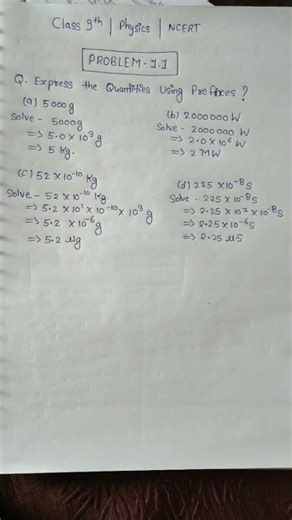 Class 9th | Physics | NCERT
PROBLEM-1.1
Q. Express the Quantities Using Prefixes?
(a) 5000g
Solve - 5000g
=> 5.0 x 10³ g
=> 5 kg.
(b) 2000000 W
Solve - 2000000 W
=> 2.0 x 10⁶ W
=> 2 MW
(c) 52 x 10⁻¹⁰ kg
Solve - 52 x 10⁻¹⁰ kg.
=> 5.2 x 10¹ x 10⁻¹⁰ x 10³ g
=> 5.2 x 10⁻⁶ g
=> 5.2 μg
(d) 225 x 10⁻⁸ s
Solve - 225 x 10⁻⁸ s
=> 2.25 x 10² x 10⁻⁸ s
=> 2.25 x 10⁻⁶ s
=> 2.25 μs